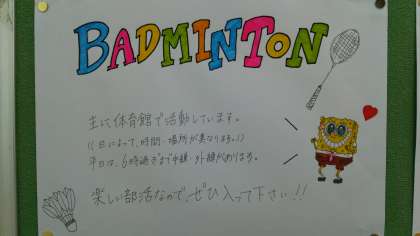 BADMINTON
主に体育館で活動しています。
(日によって、時間・場所が異なります。)
平日は、6時過ぎまで中練・外練があります。
楽しい部活なので、ぜひ入って下さい!!